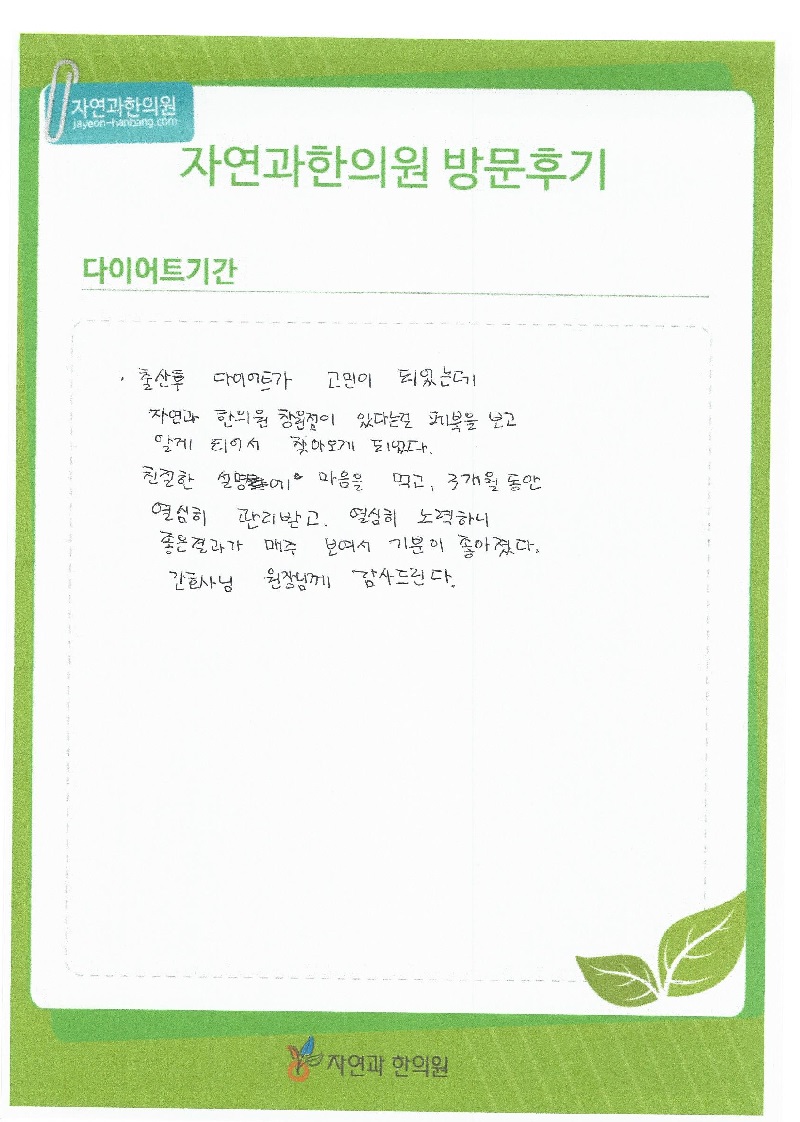 자연과한의원
jayeon-hanbang.com
자연과한의원 방문후기
다이어트기간
· 출산후 다이어트가 고민이 되었는데
자연과 한의원 창원점이 있다는걸 페북을 보고
알게 되어서 찾아오게 되었다.
친절한 설명에 마음을 먹고, 3개월 동안
열심히 관리받고, 열심히 노력하니
좋은결과가 매주 보여서 기분이 좋아졌다.
간호사님 원장님께 감사드린다.
자연과 한의원